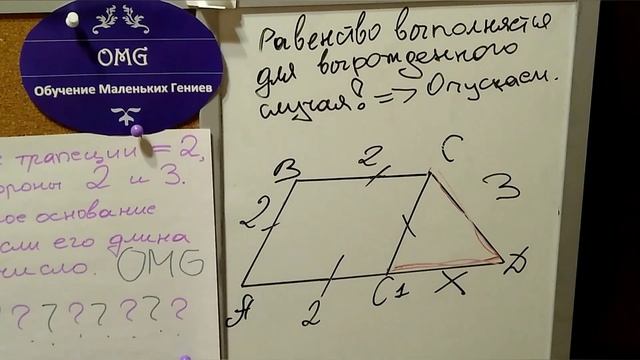 OMG
Обучение Маленьких Гениев
трапеции = 2,
2 и 3.
основание
если его длина
число. OMG
? ? ? ? ? ? ?
Равенство выполняется
для вырожденного
случая? => Опускаем.
B 2 C
2 3
A 2 C1 X D